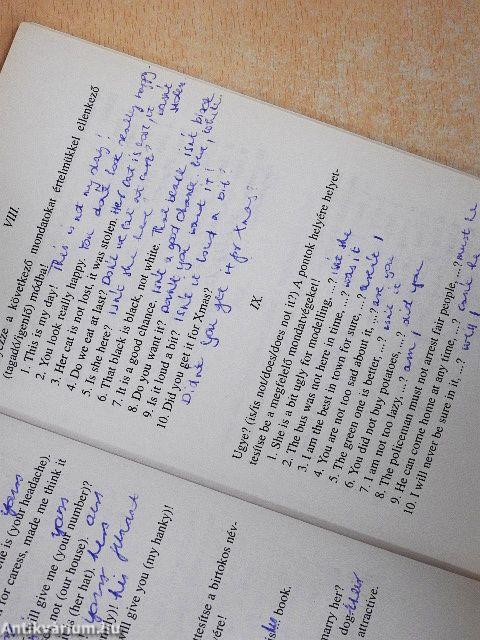 VIII.
a következő mondatokat értelmükkel ellenkező
(tagadó/igenlő) módba!
1. This is my day! This is not my day!
2. You look really happy. You don't look really happy.
3. Her cat is not lost, it was stolen. Her cat is lost, it wasn't stolen
4. Do we eat at last? Don't we eat at last?
5. Is she here? Isn't she here?
6. That black is black, not while. That black isn't black but, while.
7. It is a good chance. Isn't a good chance
8. Do you want it? Don't you want it!
9. Is it loud a bit? Isn't it loud a bit?
10. Did you get it for Xmas?
Didn't you get it for Xmas?
IX.
Ugye? (is/is not/does/does not it?) A pontok helyére helyet-
tesítse be a megfelelő mondatvégeket!
1. She is a bit ugly for modelling, ...? isn't she
2. The bus was not here in time, ...? was it
3. I am the best in town for sure, ...? aren't I
4. You are not too sad about it, ...? are you
5. The green one is better, ...? isn't it
6. You did not buy potatoes, ...? did you
7. I am not too lazy, ...? am I
8. The policeman must not arrest fair people, ...? must he
9. He can come home at any time, ...? can't he
10. I will never be sure in it, ...? will I
ne is (your headache). yours
for caress, made me think it
will give me (your number)? yours
not (our house). ours
(her hat). hers
will give you (my hanky)!
tesítse a birtokos név-
yére!
book.
marry her?
attractive.
Antikvarium.hu